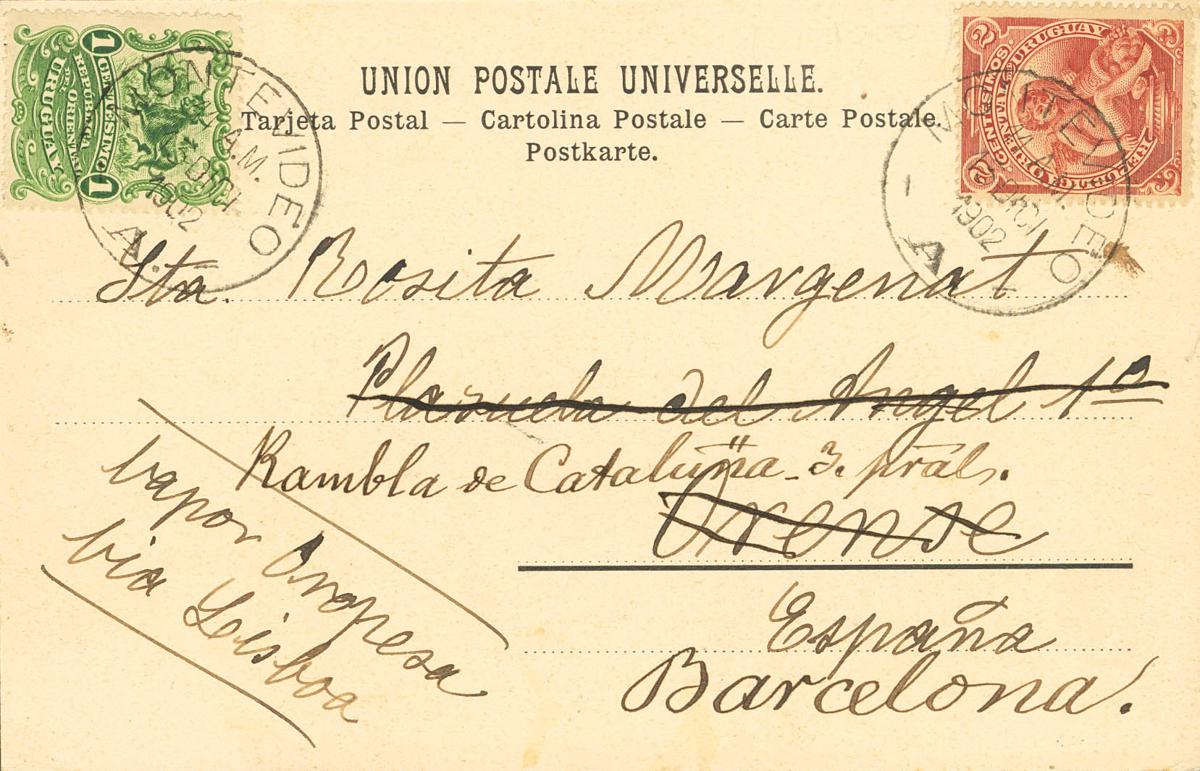 UNION POSTALE UNIVERSELLE.
Tarjeta Postal — Cartolina Postale — Carte Postale.
Postkarte.
1 CENTESIMO 1
REPUBLICA
DE ORIENTAL
URUGUAY
MONTEVIDEO
A.M.
DICI
1902
A.
2 CENTESIMOS. 2
URUGUAY
ORIENTAL
MONTEVIDEO
A.M.
DICI
1902
A
Sta. Rosita Margenat
Plazuela del Angel 1º
Rambla de Cataluña - 3. pral.
Orense
España
Barcelona.
vapor Oropesa
via Lisboa